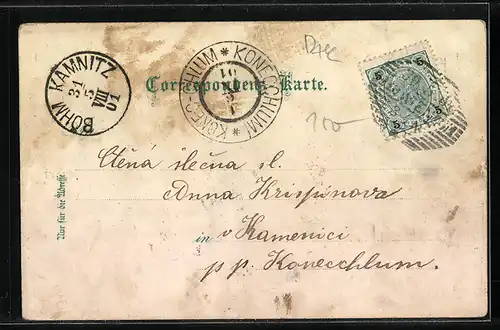 BÖHM KAMNITZ
31
5
VIII
01
KONECCHLUM * KONEC-CHLUM *
Correspondenz-Karte.
100-
5 5
Nur für die Adresse.
Ctěná slečna sl.
Anna Krispínova
in v Kamenici
p p. Konecchlum.